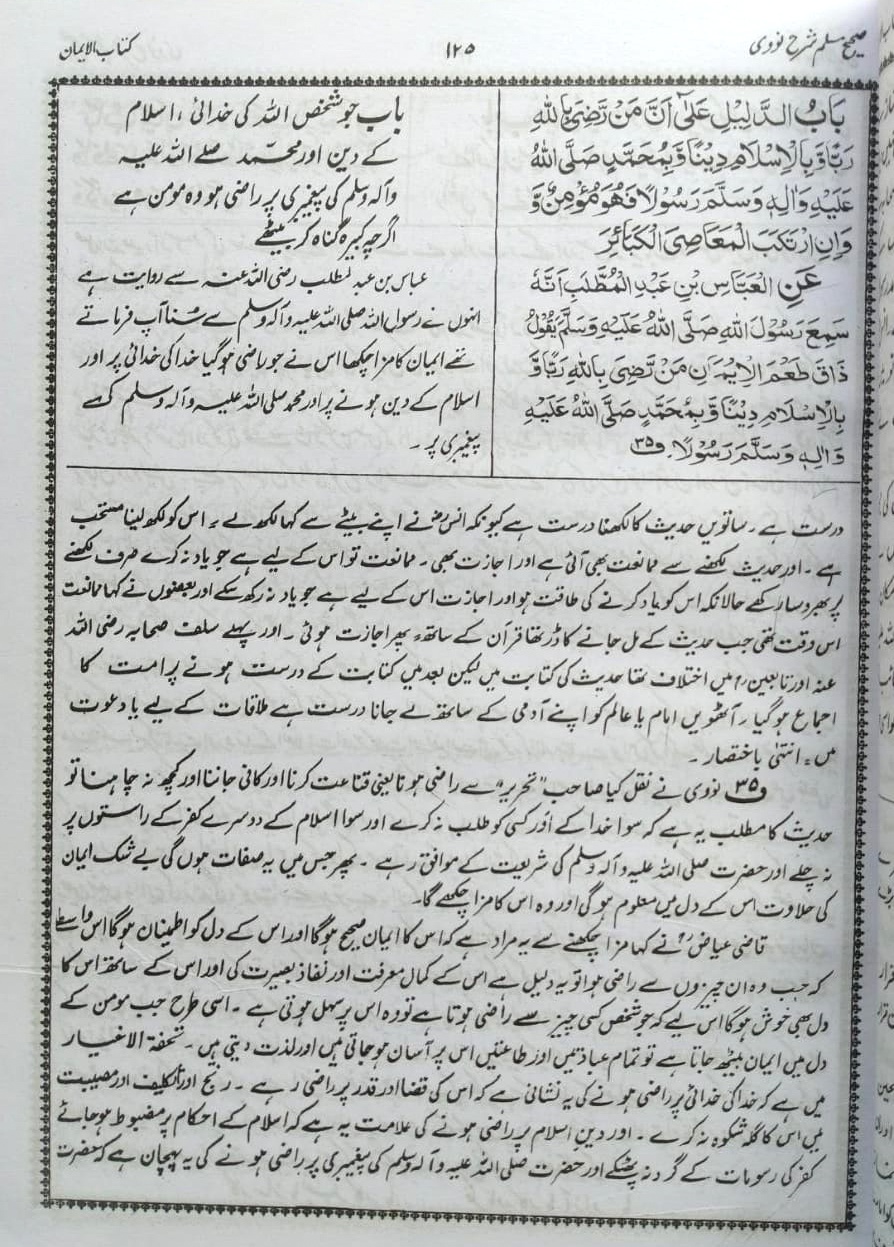 صحیح مسلم شرح نووی
۱۲۵
کتاب الایمان
بَابُ الدَّلِيْلِ عَلٰى اَنَّ مَنْ رَّضِيَ بِاللّٰهِ
رَبًّا وَّبِالْاِسْلَامِ دِيْنًا وَّبِمُحَمَّدٍ صَلَّى اللّٰهُ
عَلَيْهِ وَاٰلِهٖ وَسَلَّمَ رَسُوْلًا فَهُوَ مُؤْمِنٌ وَّ
وَاِنِ ارْتَكَبَ الْمَعَاصِيَ الْكَبَائِرَ
عَنِ الْعَبَّاسِ بْنِ عَبْدِ الْمُطَّلِبِ اَنَّهٗ
سَمِعَ رَسُوْلَ اللّٰهِ صَلَّى اللّٰهُ عَلَيْهِ وَسَلَّمَ يَقُوْلُ
ذَاقَ طَعْمَ الْاِيْمَانِ مَنْ رَّضِيَ بِاللّٰهِ رَبًّا وَّ
بِالْاِسْلَامِ دِيْنًا وَّبِمُحَمَّدٍ صَلَّى اللّٰهُ عَلَيْهِ
وَاٰلِهٖ وَسَلَّمَ رَسُوْلًا۔ ف۳۵
باب جو شخص اللہ کی خدائی، اسلام
کے دین اور محمد صلے اللہ علیہ
وآلہ وسلم کی پیغمبری پر راضی ہو وہ مومن ہے
اگرچہ کبیرہ گناہ کر بیٹھے
عباس بن عبدالمطلب رضی اللہ عنہ سے روایت ہے
انہوں نے رسول اللہ صلی اللہ علیہ وآلہ وسلم سے سنا آپ فرماتے
تھے ایمان کا مزا چکھا اس نے جو راضی ہو گیا خدا کی خدائی پر اور
اسلام کے دین ہونے پر اور محمد صلی اللہ علیہ وآلہ وسلم کے
پیغمبری پر۔
درست ہے۔ ساتویں حدیث کا لکھنا درست ہے کیونکہ انس رض نے اپنے بیٹے سے کہا لکھ لے، اس کو لکھ لینا مستحب
ہے۔ اور حدیث لکھنے سے ممانعت بھی آئی ہے اور اجازت بھی۔ ممانعت تو اس کے لیے ہے جو یاد نہ کرے صرف لکھنے
پر بھروسا رکھے حالانکہ اس کو یاد کرنے کی طاقت ہو اور اجازت اس کے لیے ہے جو یاد نہ رکھ سکے اور بعضوں نے کہا ممانعت
اس وقت تھی جب حدیث کے مل جانے کا ڈر تھا قرآن کے ساتھ، پھر اجازت ہوئی۔ اور پہلے سلف صحابہ رضی اللہ
عنہ اور تابعین رح میں اختلاف تھا حدیث کی کتابت میں لیکن بعد میں کتابت کے درست ہونے پر امت کا
اجماع ہو گیا۔ آٹھویں امام یا عالم کو اپنے آدمی کے ساتھ لے جانا درست ہے ملاقات کے لیے یا دعوت
میں، انتہٰی باختصار۔
ف۳۵ نووی نے نقل کیا صاحب "تحریر" سے راضی ہونا یعنی قناعت کرنا اور کافی جاننا اور کچھ نہ چاہنا تو
حدیث کا مطلب یہ ہے کہ سوا خدا کے اور کسی کو طلب نہ کرے اور سوا اسلام کے دوسرے کفر کے راستوں پر
نہ چلے اور حضرت صلی اللہ علیہ وآلہ وسلم کی شریعت کے موافق رہے۔ پھر جس میں یہ صفات ہوں گی بے شک ایمان
کی حلاوت اس کے دل میں معلوم ہو گی اور وہ اس کا مزا چکھے گا۔
قاضی عیاض رح نے کہا مزا چکھنے سے یہ مراد ہے کہ اس کا ایمان صحیح ہو گا اور اس کے دل کو اطمینان ہو گا اس واسطے
کہ جب وہ ان چیزوں سے راضی ہوا تو یہ دلیل ہے اس کے کمال معرفت اور نفاذ بصیرت کی اور اس کے ساتھ اس کا
دل بھی خوش ہو گا اس لیے کہ جو شخص کسی چیز سے راضی ہوتا ہے تو وہ اس پر سہل ہوتی ہے۔ اسی طرح جب مومن کے
دل میں ایمان بیٹھ جاتا ہے تو تمام عبادتیں اور طاعتیں اس پر آسان ہو جاتی ہیں اور لذت دیتی ہیں۔ تحفۃ الاخیار
میں ہے کہ خدا کی خدائی پر راضی ہونے کی یہ نشانی ہے کہ اس کی قضا اور قدر پر راضی رہے۔ رنج اور تکلیف اور مصیبت
میں اس کا گلہ شکوہ نہ کرے۔ اور دین اسلام پر راضی ہونے کی علامت یہ ہے کہ اسلام کے احکام پر مضبوط ہو جائے
کفر کی رسومات کے گرد نہ پھٹکے اور حضرت صلی اللہ علیہ وآلہ وسلم کی پیغمبری پر راضی ہونے کی یہ پہچان ہے کہ حضرت